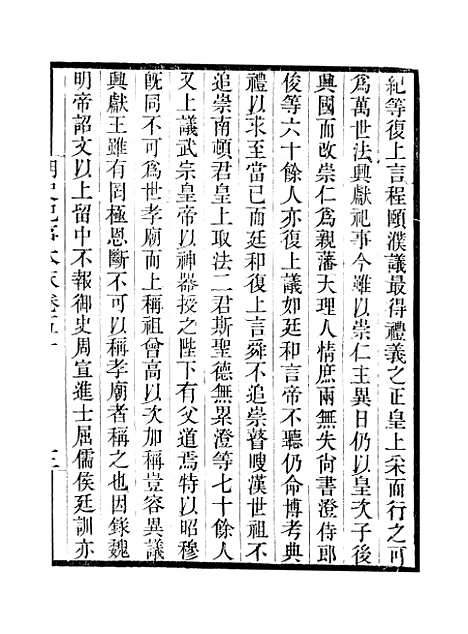 紀等復上言程頤濮議最得禮義之正皇上采而行之可
爲萬世法興獻祀事今雖以崇仁主異日仍以皇次子後
興國而改崇仁爲親藩大理人情庶兩無失尙書澄侍郎
俊等六十餘人亦復上議如廷和言帝不聽仍命博考典
禮以求至當已而廷和復上言舜不追崇瞽瞍漢世祖不
追崇南頓君皇上取法二君斯聖德無累澄等七十餘人
又上議武宗皇帝以神器授之陛下有父道焉特以昭穆
旣同不可爲世孝廟而上稱祖曾高以次加稱豈容異議
興獻王雖有罔極恩斷不可以稱孝廟者稱之也因錄魏
明帝詔文以上留中不報御史周宣進士屈儒侯廷訓亦
明史紀事本末卷五十